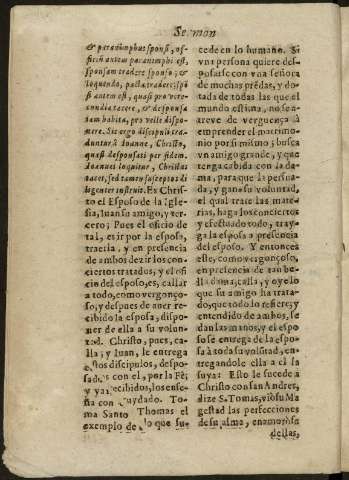 Sermon
& paranimphus sponsi, of-
ficiũ autem paranimphi est,
sponsam tradere sponso; &
loquendo, pacta tradere; spõ
si autem est, quasi præ vere-
cundia tacere, & desponsa
iam habita, pro velle dispo-
nere. Sic ergo discipuli tra-
duntur à Ioanne, Christo,
quasi desponsati per fidem.
Ioannes loquitur, Christus
tacet, sed tamen susceptos di
ligenter instruit. Es Chris-
to el Esposo de la Igle-
sia, Iuan su amigo, y ter-
cero; Pues el oficio de
tal, es ir por la esposa,
traerla, y en presencia
de ambos dezir los con-
ciertos tratados, y el ofi
cio del esposo, es, callar
a todo, como vergonço-
so, y despues de auer re-
cibido la esposa, dispo-
ner de ella a su volun-
tad. Christo, pues, ca-
lla; y Iuan, le entrega
estos discipulos, despo-
sados con el, por la Fè;
y ya recibidos, los ense-
ña con cuydado. To-
ma Santo Thomas el
exemplo de lo que su-
cede en lo humano. Si
vna persona quiere des-
posarse con vna señora
de muchas prẽdas, y do-
tada de todas las que el
mundo estima, no se a-
treve de verguença à
emprender el matrimo-
nio por si mismo; busca
vn amigo grande, y que
tenga cabida con la da-
ma, para que la persua-
da, y gane su voluntad,
el qual trate las mate-
rias, haga los conciertos
y efectuado todo, tray-
ga la esposa a presencia
del esposo. Y entonces
este, como vergonçoso,
en presencia de tan be-
lla dama, calla, y oye lo
que su amigo ha trata-
do, que todo lo refiere; y
entendido de ambos, se
dan las manos, y el espo
so se entrega de la espo-
sa à toda su volũtad, en-
tregandole ella a el la
suya: Esto le sucede à
Christo con San Andres,
dize S. Tomas, viò su Ma
gestad las perfecciones
de su alma, enamoròse
dellas,